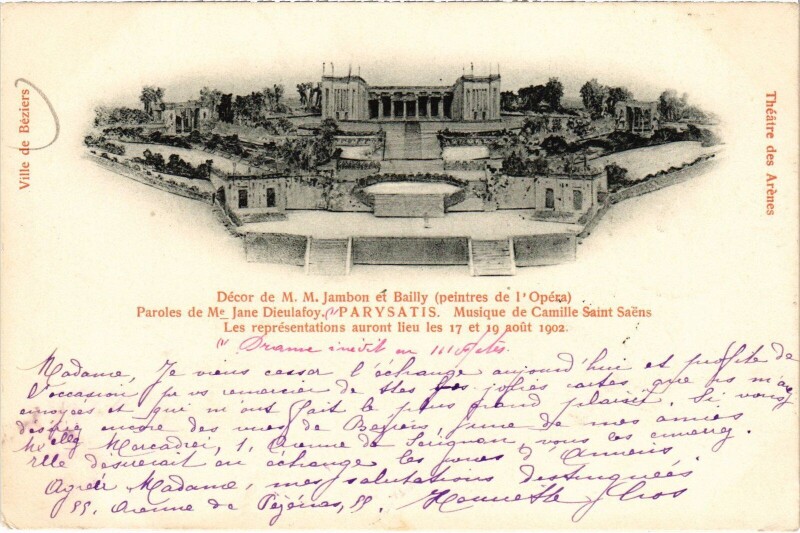 Ville de Béziers
Théâtre des Arènes
Décor de M. M. Jambon et Bailly (peintres de l'Opéra)
Paroles de Me Jane Dieulafoy, (1) PARYSATIS. Musique de Camille Saint Saëns
Les représentations auront lieu les 17 et 19 août 1902.
(1) Drame inédit en III actes.
Madame, Je viens cesser l'échange aujourd'hui et profite de
l'occasion pr vs remercier de ttes les jolies cartes que vs m'avez
envoyées et qui m'ont fait le plus grand plaisir. Si vous
désirez encore des vues de Béziers, l'une de mes amies
Melle Mercadier, 1, Avenue de Sérignan, vous les enverra.
elle désirerait en échange les vues d'Amiens
Agréer Madame, mes salutations distinguées.
55, Avenue de Pézénas, 55.